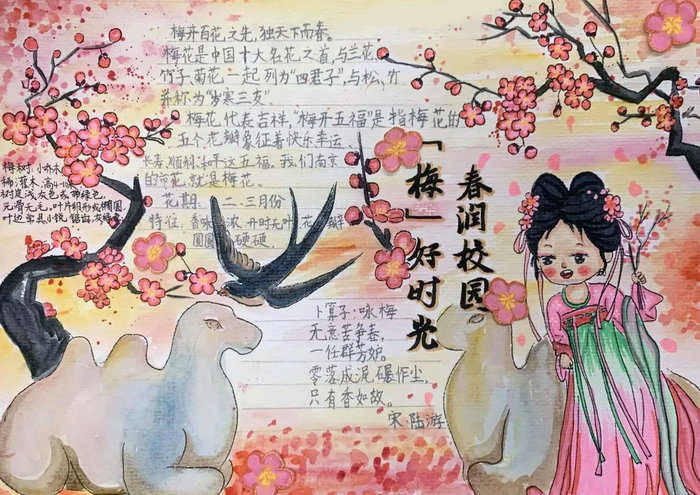 梅开百花之先，独天下而春。
梅花是中国十大名花之首，与兰花、
竹子、菊花一起列为“四君子”，与松、竹
并称为“岁寒三友”
梅花，代表吉祥，“梅开五福”是指梅花的
五个花瓣象征着快乐幸运、
长寿、顺利、和平这五福。我们南京
的市花就是梅花。
花期：二、三月份
特征：香味浓、开时无叶、花瓣
圆圆 硬硬．
梅树：小乔木
稀灌木，高4-10
树皮浅灰色或带绿色，
光滑无毛。叶片卵形或椭圆
叶边常具小锐锯齿，灰绿色
「梅」好时光
春润校园
卜算子·咏梅
无意苦争春，
一任群芳妒。
零落成泥碾作尘，
只有香如故。
宋·陆游